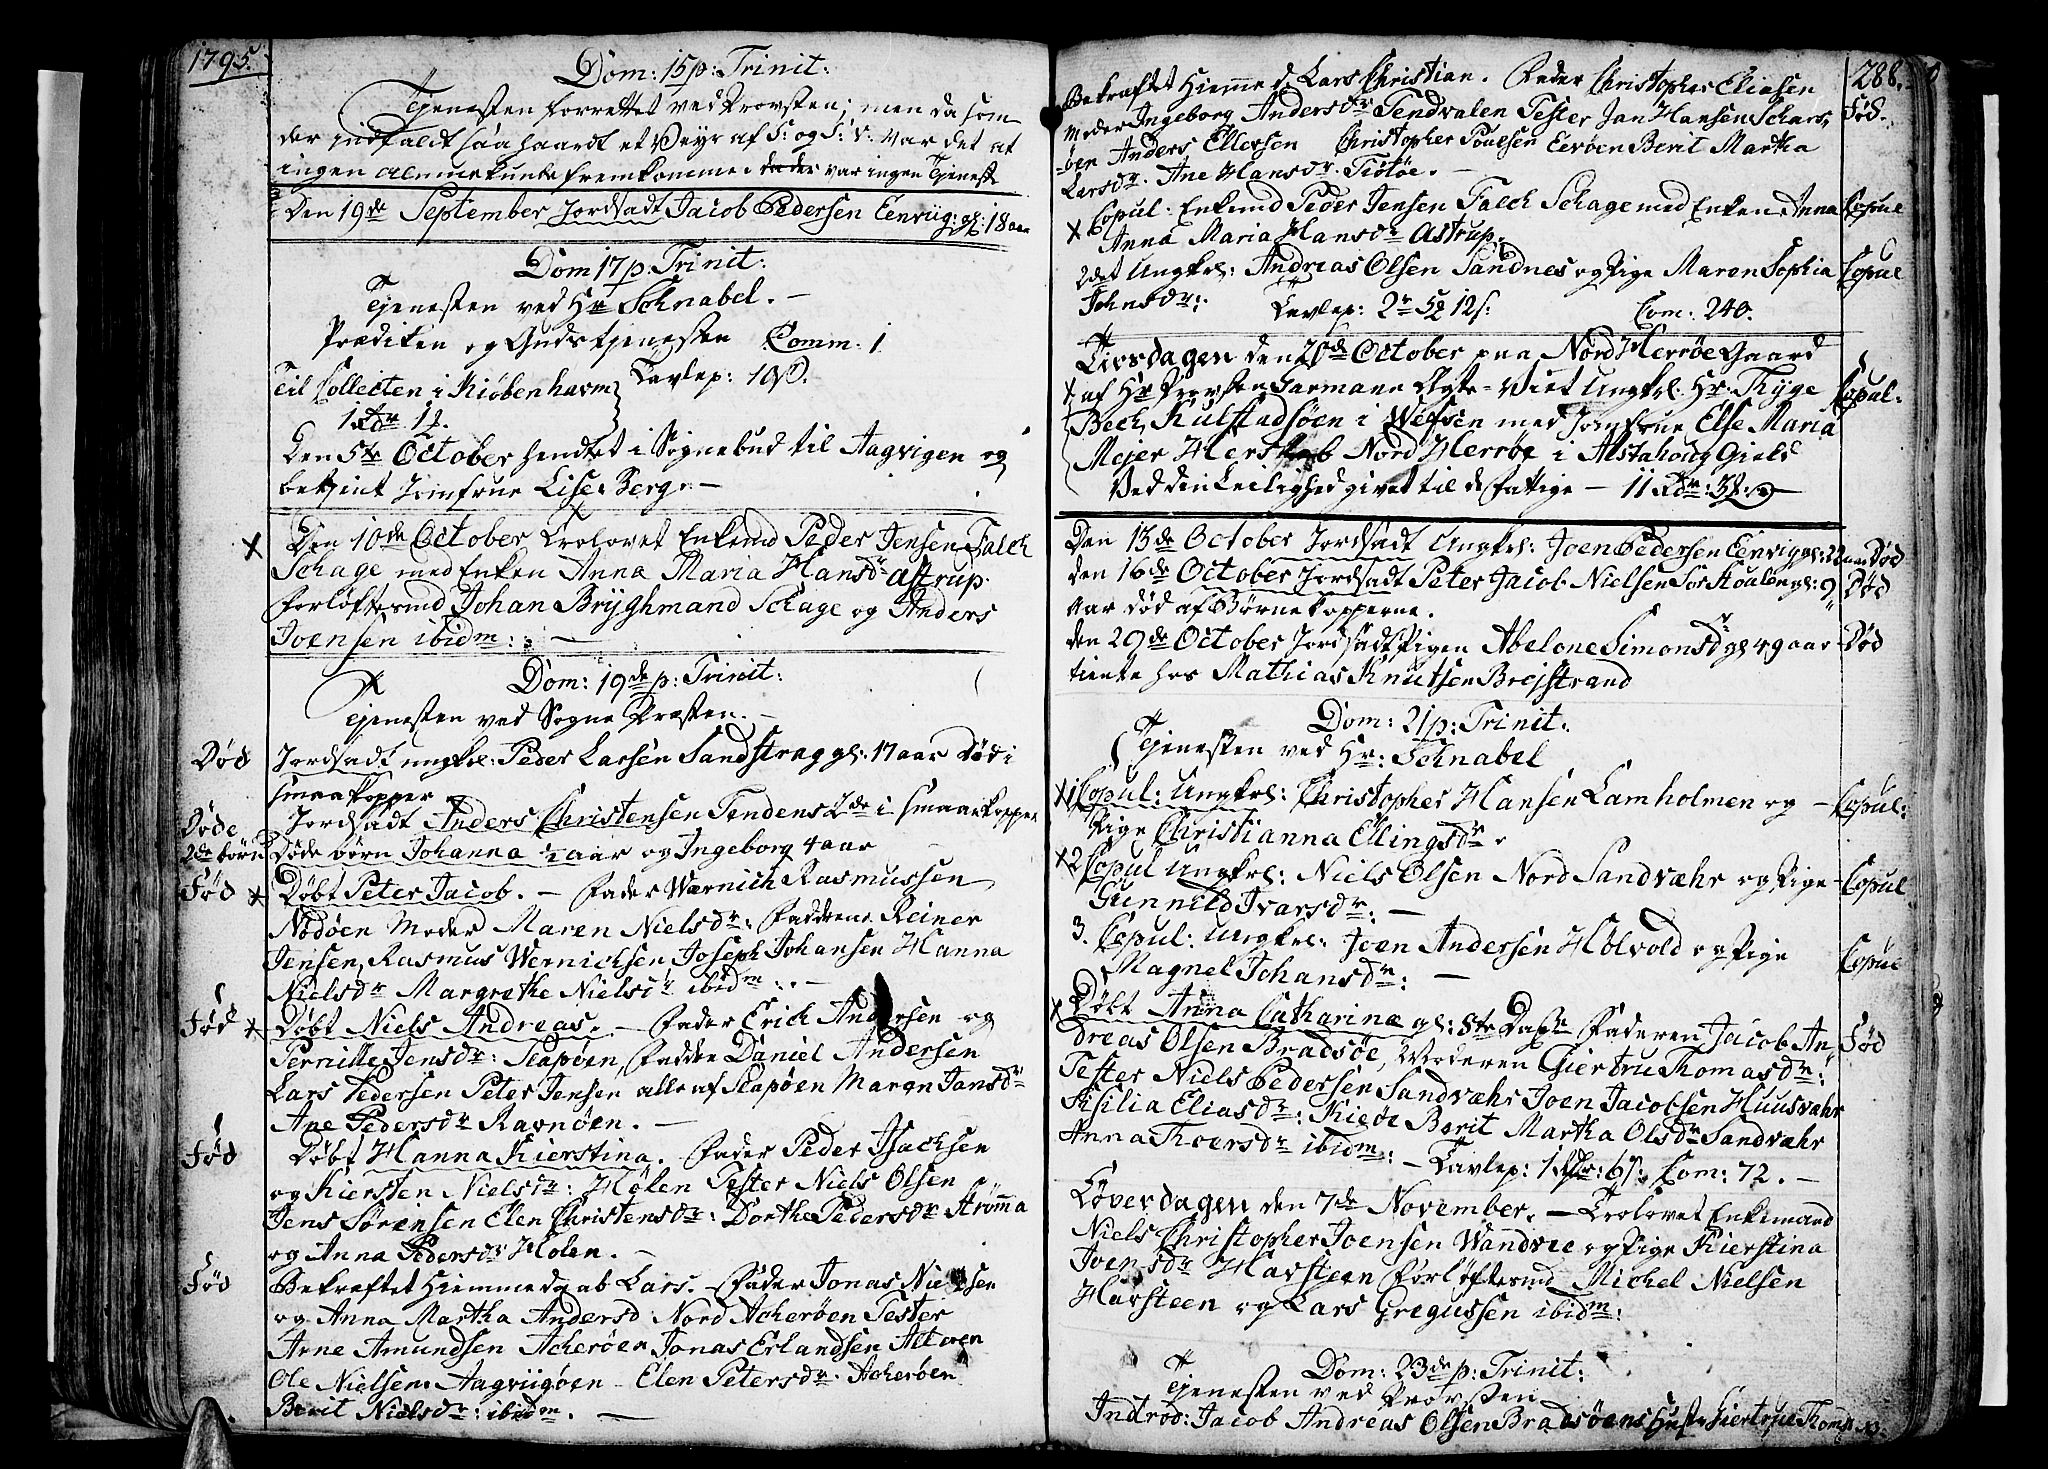 1795.
Dom: 15 p: Trinit:
Tjenesten forrettet ved Provsten; men da som
der indfaldt saa haardt et Veyr af S: og S: V: var det at
ingen almue kunde fremkomme var ingen Tjenest
Den 19de September Jordfæstet Jacob Pedersen Eenriig: gl: 18 aar
Dom 17 p: Trinit:
Tjenesten ved Hr Schnabel. -
Prædiken og Gudstjenesten Comm: 1
Til Collecten i Kiøbenhavn Tavlep: 10
1 Rdr 1
Den 5te October hendtet i Sognebud til Aagvigen og
betjent Jomfrue Lise Berg. -
x Den 10de October Trolovet Enkemd Peder Jensen Falch
Schage med Enken Anna Maria Hansdr Astrup.
Forløftesmd Johan Bryghmand Schage og Anders
Joensen ibidm: -
Dom: 19de p: Trinit:
Tjenesten ved Sogne Præsten. -
Død Jordfæstet ungkrl: Peder Larsen Sandstrag gl: 17 aar Død i
smaakopper
Døde Jordfæstet Anders Christensen Tendens 2de i smaakopper
2de børn Døde børn Johanna ½ aar og Ingeborg 4 aar
Fød x Døbt Peter Jacob. - Fader Wærnich Rasmussen
Nodøen Moder Maren Nielsdr: Faddrene Reiner
Jensen, Rasmus Wernichsen Joseph Johansen Hanna
Nielsdr Margrethe Nielsdr ibidm: -
Fød x Døbt Niels Andreas. - Fader Erich Andersen og
Pernille Jensdr: Slapøen, Faddre Daniel Andersen
Lars Pedersen Peter Jensen alle af Slapøen Maren Jansdr
Ane Pedersdr Ravnøen. -
Fød Døbt Hanna Kierstina. Fader Peder Isachsen
og Kiersten Nielsdr: Holen Tester Niels Olsen
Jens Sørensen Elen Christensdr: Dorthe Pedersdr Strømma
og Anna Pedersdr Holen. -
Fød Bekræftet Hiemmedaab Lars. - Fader Jonas Nielsen
og Anna Martha Andersd Nord Acherøen Tester
Arne Amundsen Acherøen Jonas Erlandsen Alteren
Ole Nielsen Aagviigøen - Elen Petersdr. Acherøen
Berit Nielsdr: ibidm. -
288.
Bekræftet Hiemmed. Lars Christian. Fader Christopher Eliasen
Moder Ingeborg Andersdr Tendvalen Tester Jan Hansen Schars, Fød.
øen Anders Ellersen Christopher Poulsen Eerøen Berit Martha
Larsdr. Ane Hansdr. Tiøtøe. -
x Copul: Enkemd Peder Jensen Falch Schage med Enken Anna Copul
Anna Maria Hansdr Astrup.
2det Ungkrl: Andreas Olsen Sandnes og Pige Maren Sophia Copul
Johnsdr: Tavlep: 2r 5 12s: Com: 240.
Tirsdagen den 20de October paa Nord Herrøe Gaard
x af Hr Provsten Garmann Ægte-Viet Ungkrl. Hr: Thyge Copul:
Bech, Kulstadsøen i Wefsen med Jomfrue Else Maria
Mejer Nord Herrøe i Alstahoug Gield
Ved den Leilighed givet til de fattige - 11 Rdr:
Den 13de October Jordfæstet Ungkrl: Joen Pedersen Eenriig gl: 22 aar Død
Den 16de October Jordfæstet Peter Jacob Nielsen gl: 9 Død
Aar død af Børnekopperne.
Den 29de October Jordfæstet Pigen Abelone Simonsdr gl 49 aar Død
tiente hos Mathias Knutsen Brejstrand
Dom: 21 p: Trinit:
Tjenesten ved Hr: Schnabel
x 1 Copul: Ungkrl: Christopher Hansen Lamholmen og - Copul:
Pige Christianna Ellingsdr.
x 2 Copul Ungkrl: Niels Olsen Nord Sandvæhr og Pige - Copul
Gunnild Ivarsdr: -
3. Copul: Ungkrl: Joen Andersen Hølvold og Pige Copul
Magnel Johansdr: -
x Døbt Anna Catharina gl: 8te Dage Faderen Jacob An, Fød
dreas Olsen Bradsøe, Moderen Giertru Thomasdr:
Tester Niels Pedersen Sandvæhr Joen Jacobsen Huusvæhr
Sisilia Eliasdr: Kieøe Berit Martha Olsdr Sandvæhr
Anna Thoersdr ibidm: - Tavlep: 1 Com: 72. -
Løverdagen den 7de November. - Trolovet Enkemand
Niels Christopher Joensen Wandvee og Pige Kierstina
Joensdr Harsteen Forløftesmd Michel Nielsen
Harsteen og Lars Gregussen ibidm:
Dom: 23de p: Trinit:
Tjenesten ved Provsten
Introd: Jacob Andreas Olsen Bradsøens Hustr Giertrue Thoms